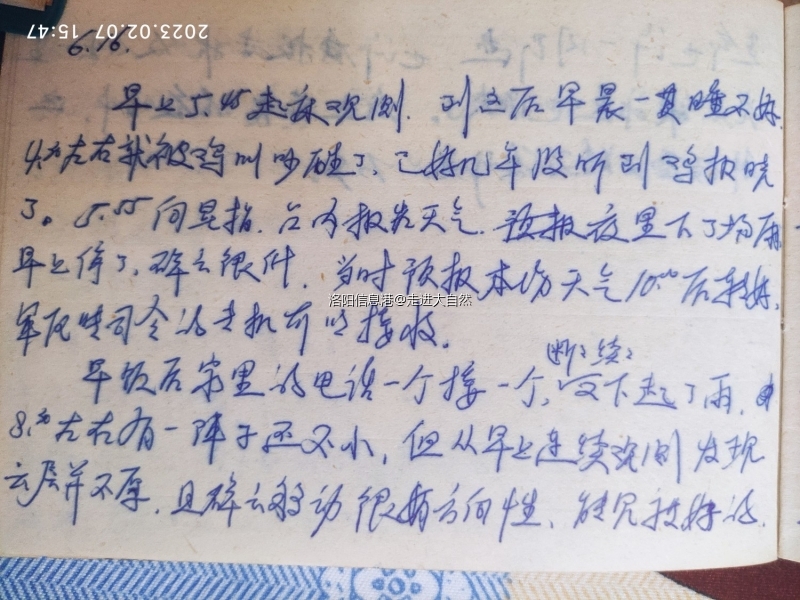 2023.07.02 15:47
6.16.
早上5.45起床观测. 到这后早晨一贯睡不好.
4.30左右就被鸡叫吵醒了, 已好几年没听到鸡报晓
了。5.55向 指. 台内报告天气. 预报夜里下了场雨
早上停了, 碎云很低. 当时预报本场天气10.00后转好,
军区 司令的专机可以接收.
早饭后 里的电话一个接一个, 又断断续续下起了雨.
8.30左右有一阵子还不小, 但从早上连续观测发现
云层并不厚, 且碎云移动很有方向性, 能见 好的.
洛阳信息港@走进大自然